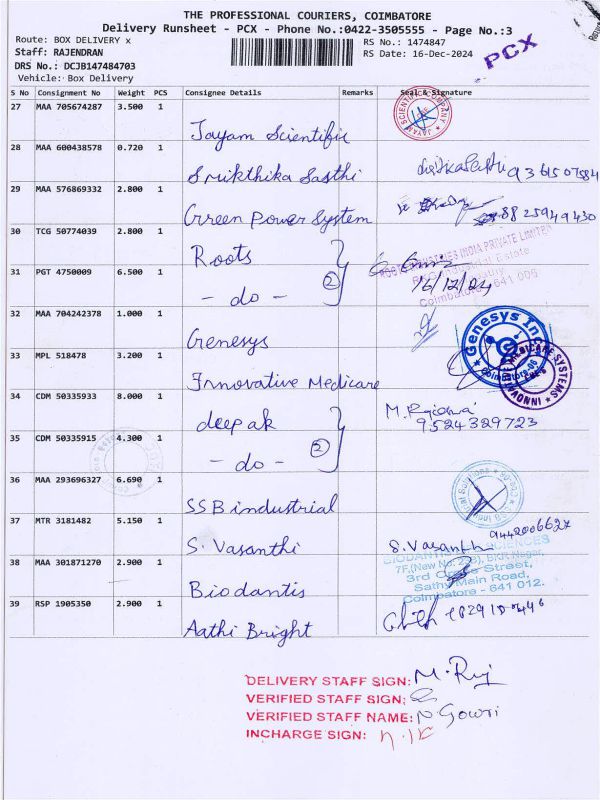 THE PROFESSIONAL COURIERS, COIMBATORE
Delivery Runsheet - PCX - Phone No.:0422-3505555 - Page No.:3
Route: BOX DELIVERY x
RS No.: 1474847
PCX
Staff: RAJENDRAN
RS Date: 16-Dec-2024
DRS No.: DCJB147484703
Vehicle: Box Delivery
S No Consignment No Weight PCS Consignee Details Remarks Seal & Signature
27 MAA 705674287 3.500 1 Jayam Scientific
28 MAA 600438578 0.720 1 Srikthika Sasthi
29 MAA 576869332 2.800 1 Green Power System 8825949430
30 TCG 50774039 2.800 1 Roots
ROOTS INDUSTRIES INDIA PRIVATE LIMITED
31 PGT 4750009 6.500 1 - do - 2 16/12/24
Coimbatore - 641 006
32 MAA 704242378 1.000 1 Genesys
Genesys Inc
Coimbatore-06
33 MPL 518478 3.200 1 Innovative Medicare
INNOVATIVE MEDICARE SYSTEMS
34 CDM 50335933 8.000 1 deepak
9524329723
35 CDM 50335915 4.300 1 - do - 2
36 MAA 293696327 6.690 1 SSB industrial
37 MTR 3181482 5.150 1 S. Vasanthi S. Vasanthi 9442006627
38 MAA 301871270 2.900 1 Biodantis
BIODANTIS SCIENCES
3rd Cross Street,
Sathy Main Road,
Coimbatore - 641 012.
39 RSP 1905350 2.900 1 Aathi Bright
DELIVERY STAFF SIGN: M. Raj
VERIFIED STAFF SIGN:
VERIFIED STAFF NAME: N. Gowri
INCHARGE SIGN: